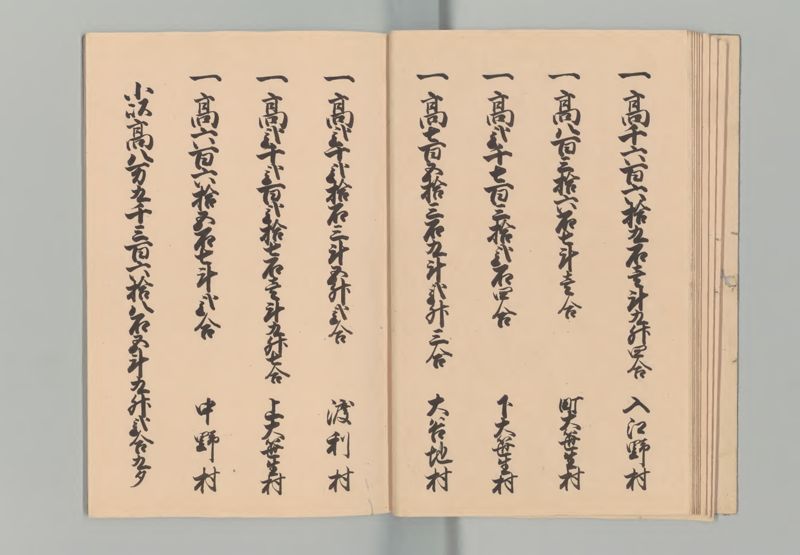 一高千六百六拾九石壱斗九升四合 入江野村
一高八百三拾六石七斗壱合 町大笹生村
一高弐千七百三拾弐石四合 下大笹生村
一高七百五拾三石九斗弐升三合 大谷地村
一高弐千弐拾石三斗五升弐合 渡利村
一高弐千弐百弐拾七石壱斗九升七合 上大笹生村
一高六百六拾五石七斗弐合 中野村
小以高八万九千三百六拾八石五斗九升弐合九夕